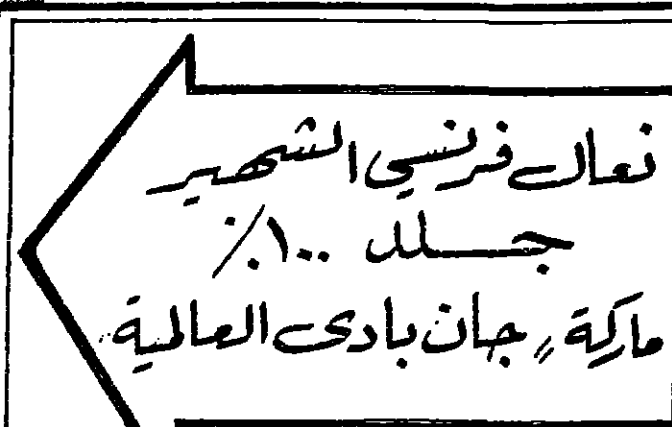 نعال فرنسي الشهير
جلد ١٠٠٪
ماركة ,, جان بادى العالمية